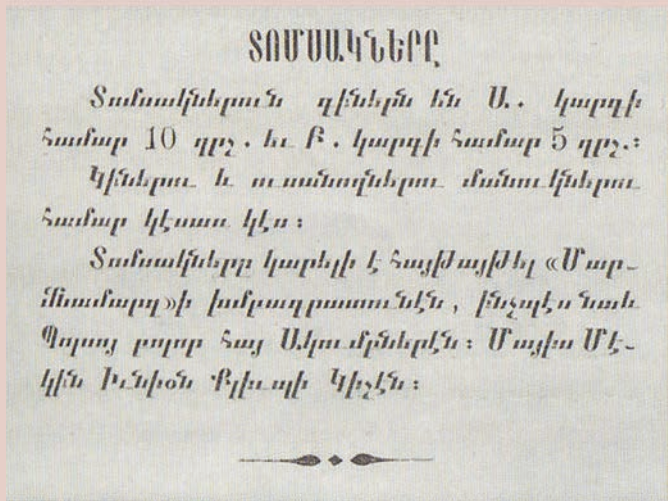 ՏՈՄՍԱԿՆԵՐԸ
Տոմսակներուն գիներն են Ա. կարգի
համար 10 ղրշ. եւ Բ. կարգի համար 5 ղրշ.։
Կիներու և ուսանողներու մանուկներու
համար կէսառ կէս։
Տոմսակները կարելի է հայթայթել «Մար-
մնամարզ»ի խմբագրատունէն, ինչպէս նաև
Պոլսոյ բոլոր հայ Ակումբներէն։ Մայիս Մէ-
կին Իւնիօն Քլիւպի Կիշէն։